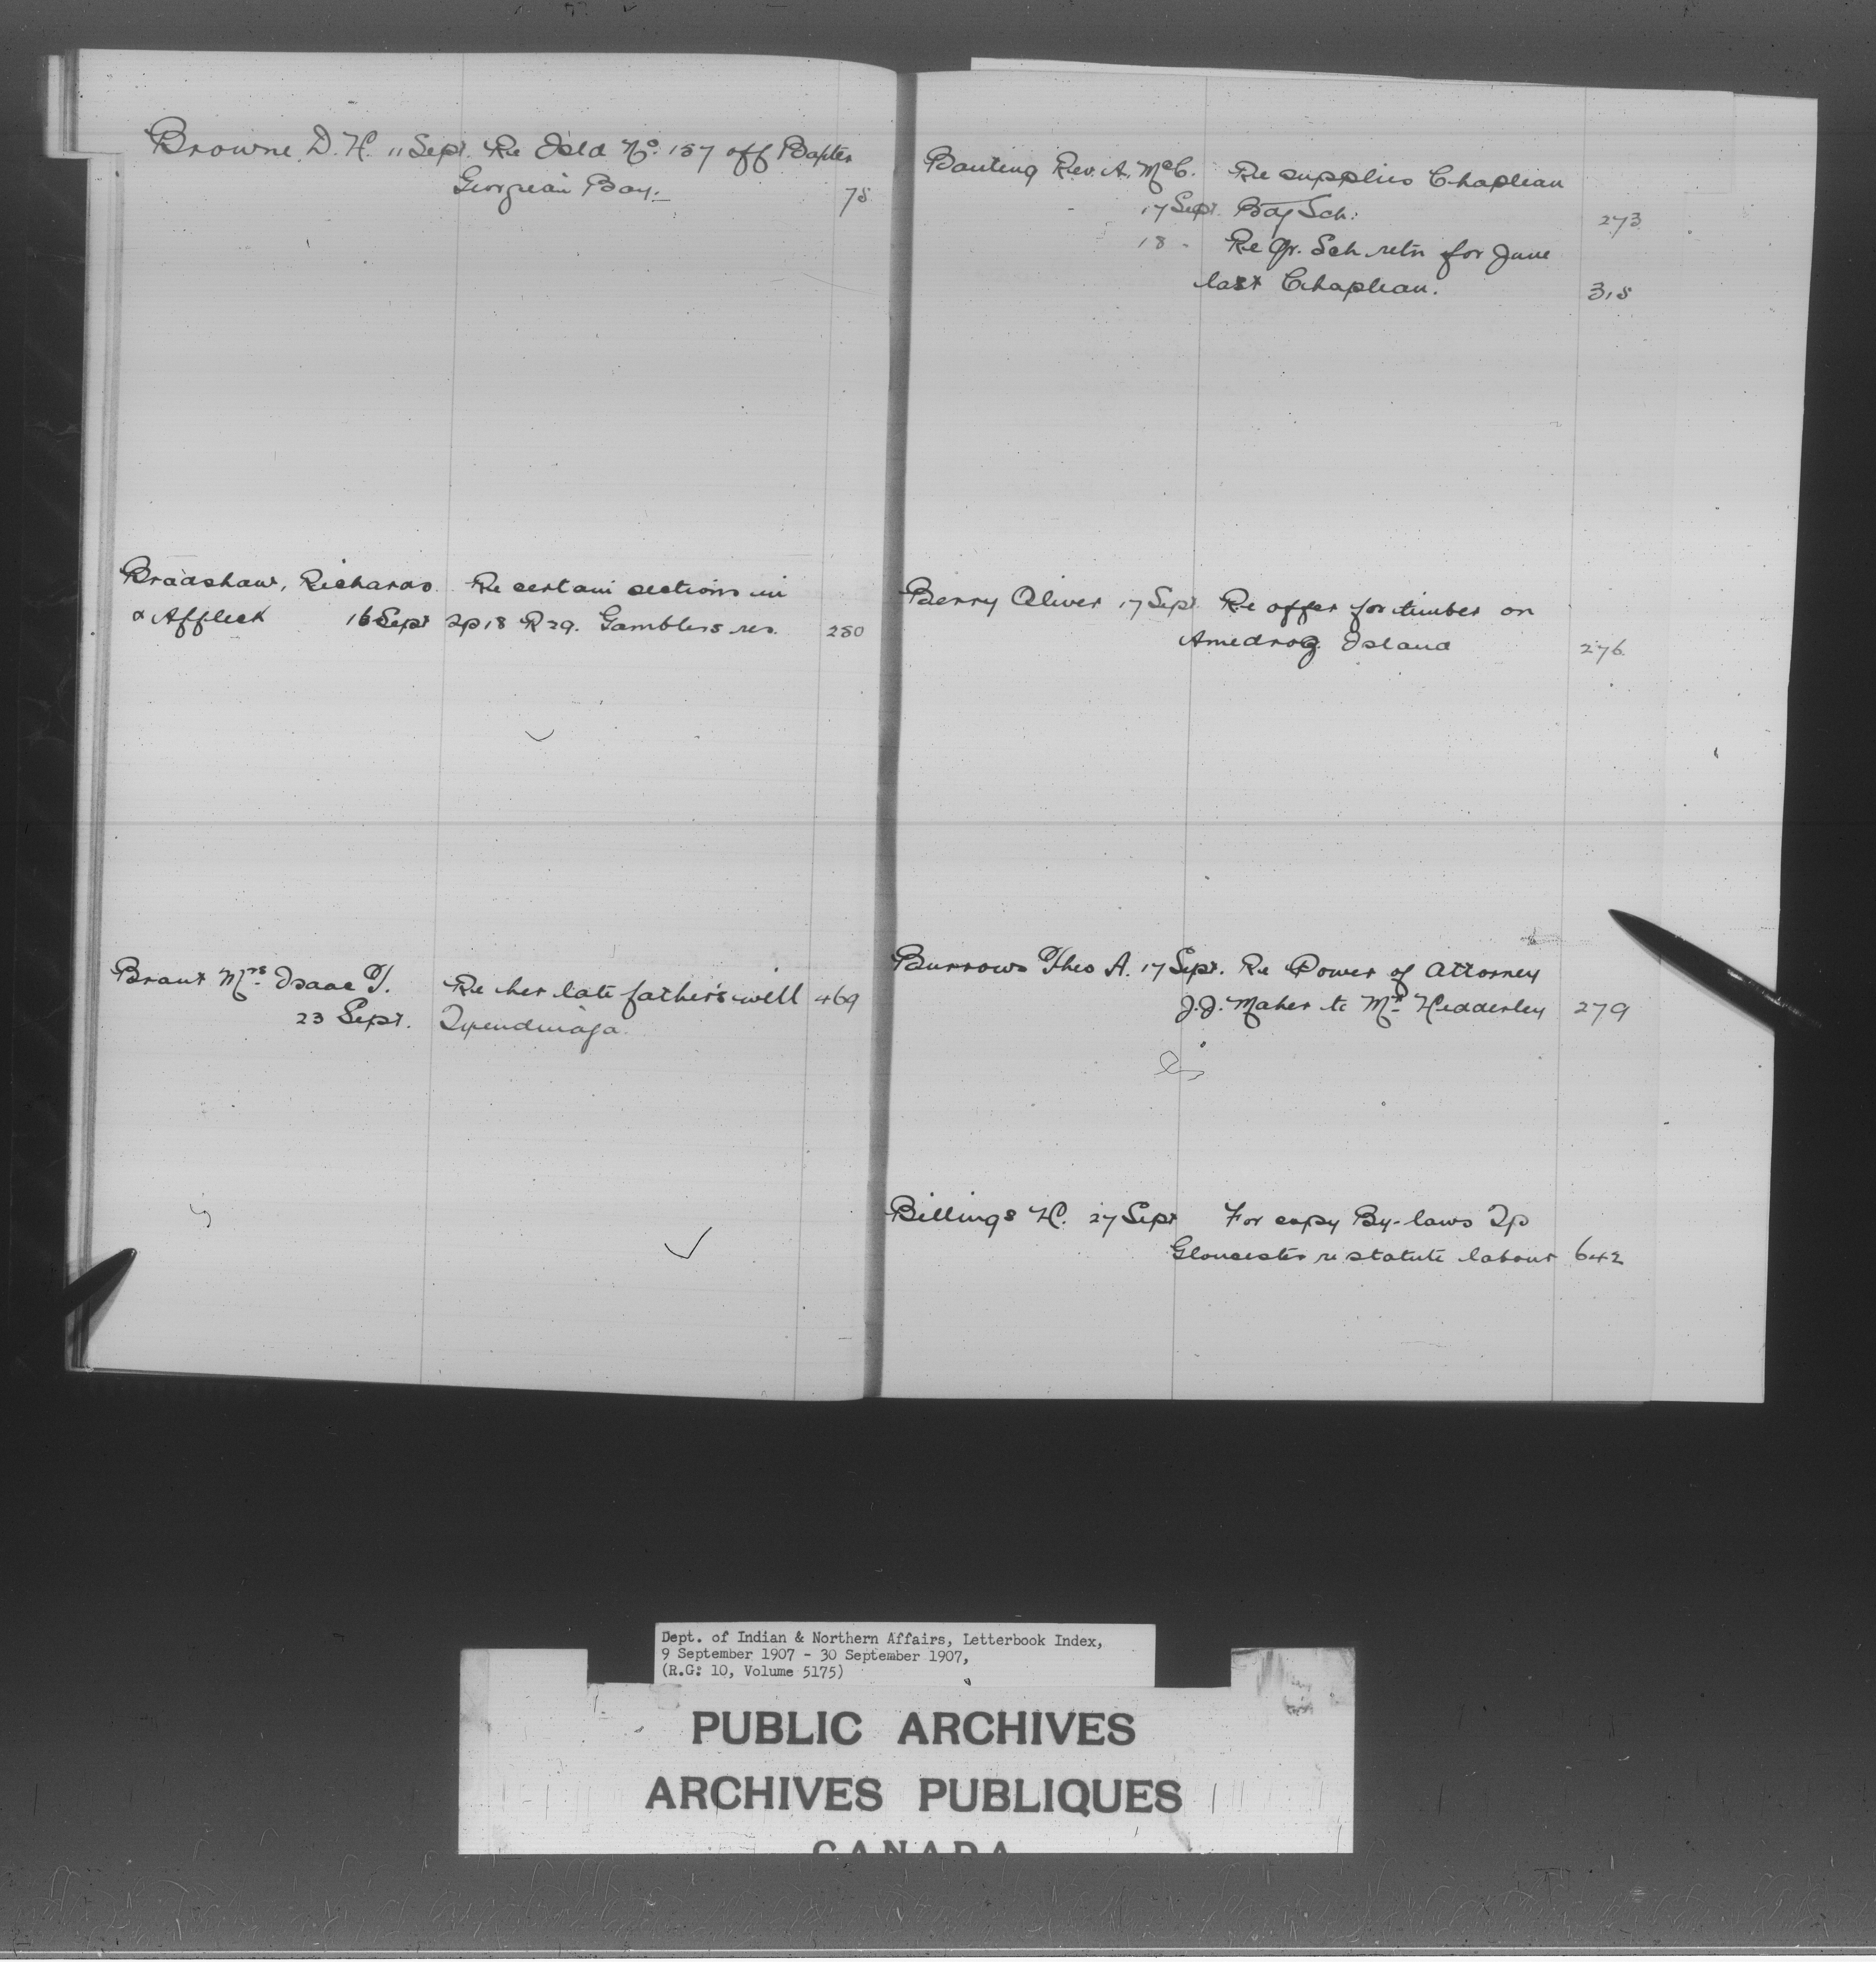 Browne, D. H. 11 Sept. Re Isld No. 157 off Baxter
Georgian Bay. 75
Bradshaw, Richards Re certain sections in
& Affleck 16 Sept Tp 18 R 29. Gamblers res. 250
Brant Mrs. Isaac T. Re her late father's will 469
23 Sept. Tyendinaga.
Banting Rev. A. McC. Re supplies Chapleau
17 Sept. Bdg Sch: 273
18 " Re qr. Sch retn for June
last Chapleau. 315
Berry Oliver 17 Sept. Re offer for timber on
Amedroz Island 276
Burrows Theo A. 17 Sept. Re Power of Attorney
J.J. Maher to Mr. Hedderley 279
Billings H. 27 Sept For copy By-laws Tp
Gloucester re statute labour 642
Dept. of Indian & Northern Affairs, Letterbook Index,
9 September 1907 - 30 September 1907,
(R.G: 10, Volume 5175)
PUBLIC ARCHIVES
ARCHIVES PUBLIQUES
CANADA